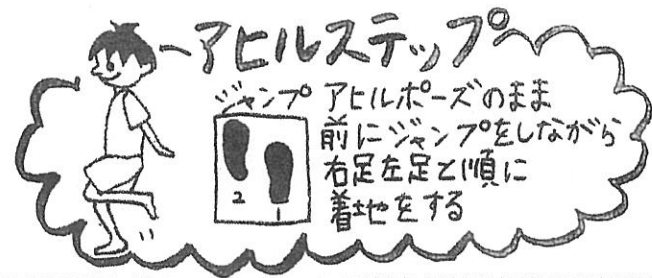 アヒルステップ
ジャンプ
2
1
アヒルポーズのまま
前にジャンプをしながら
右足左足と順に
着地をする